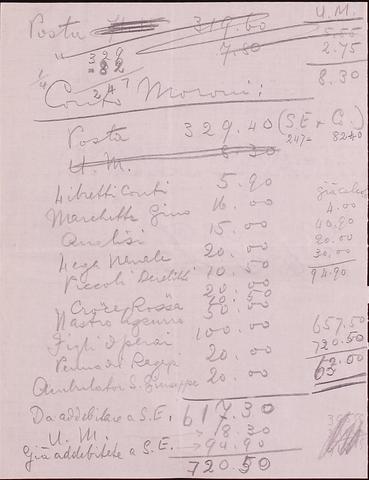 Posta 319.60 U.M.
" 329 7.80 5.55
= 82 2.75
247 8.30
Conto Moroni:
Posta 329.40 (S.E + Co.)
247= 82.40
U.M. 8.30
Libretti Conti 5.90 già
Marchetta Gino 16.00 4.00
Analisi 15.00 40.90
Lega Navale 20.00 20.00
Piccoli Derelitti 10.50 30.00
20.00 94.90
Croce Rossa 50.00
Nastro azzurro
Figli Operai 100.00 657.50
20.00 720.50
Ambulator S. Giuseppe 20.00
Da addebitare a S.E. 617.30
U.M. 8.30
Già addebitate a S.E. 94.90
720.50